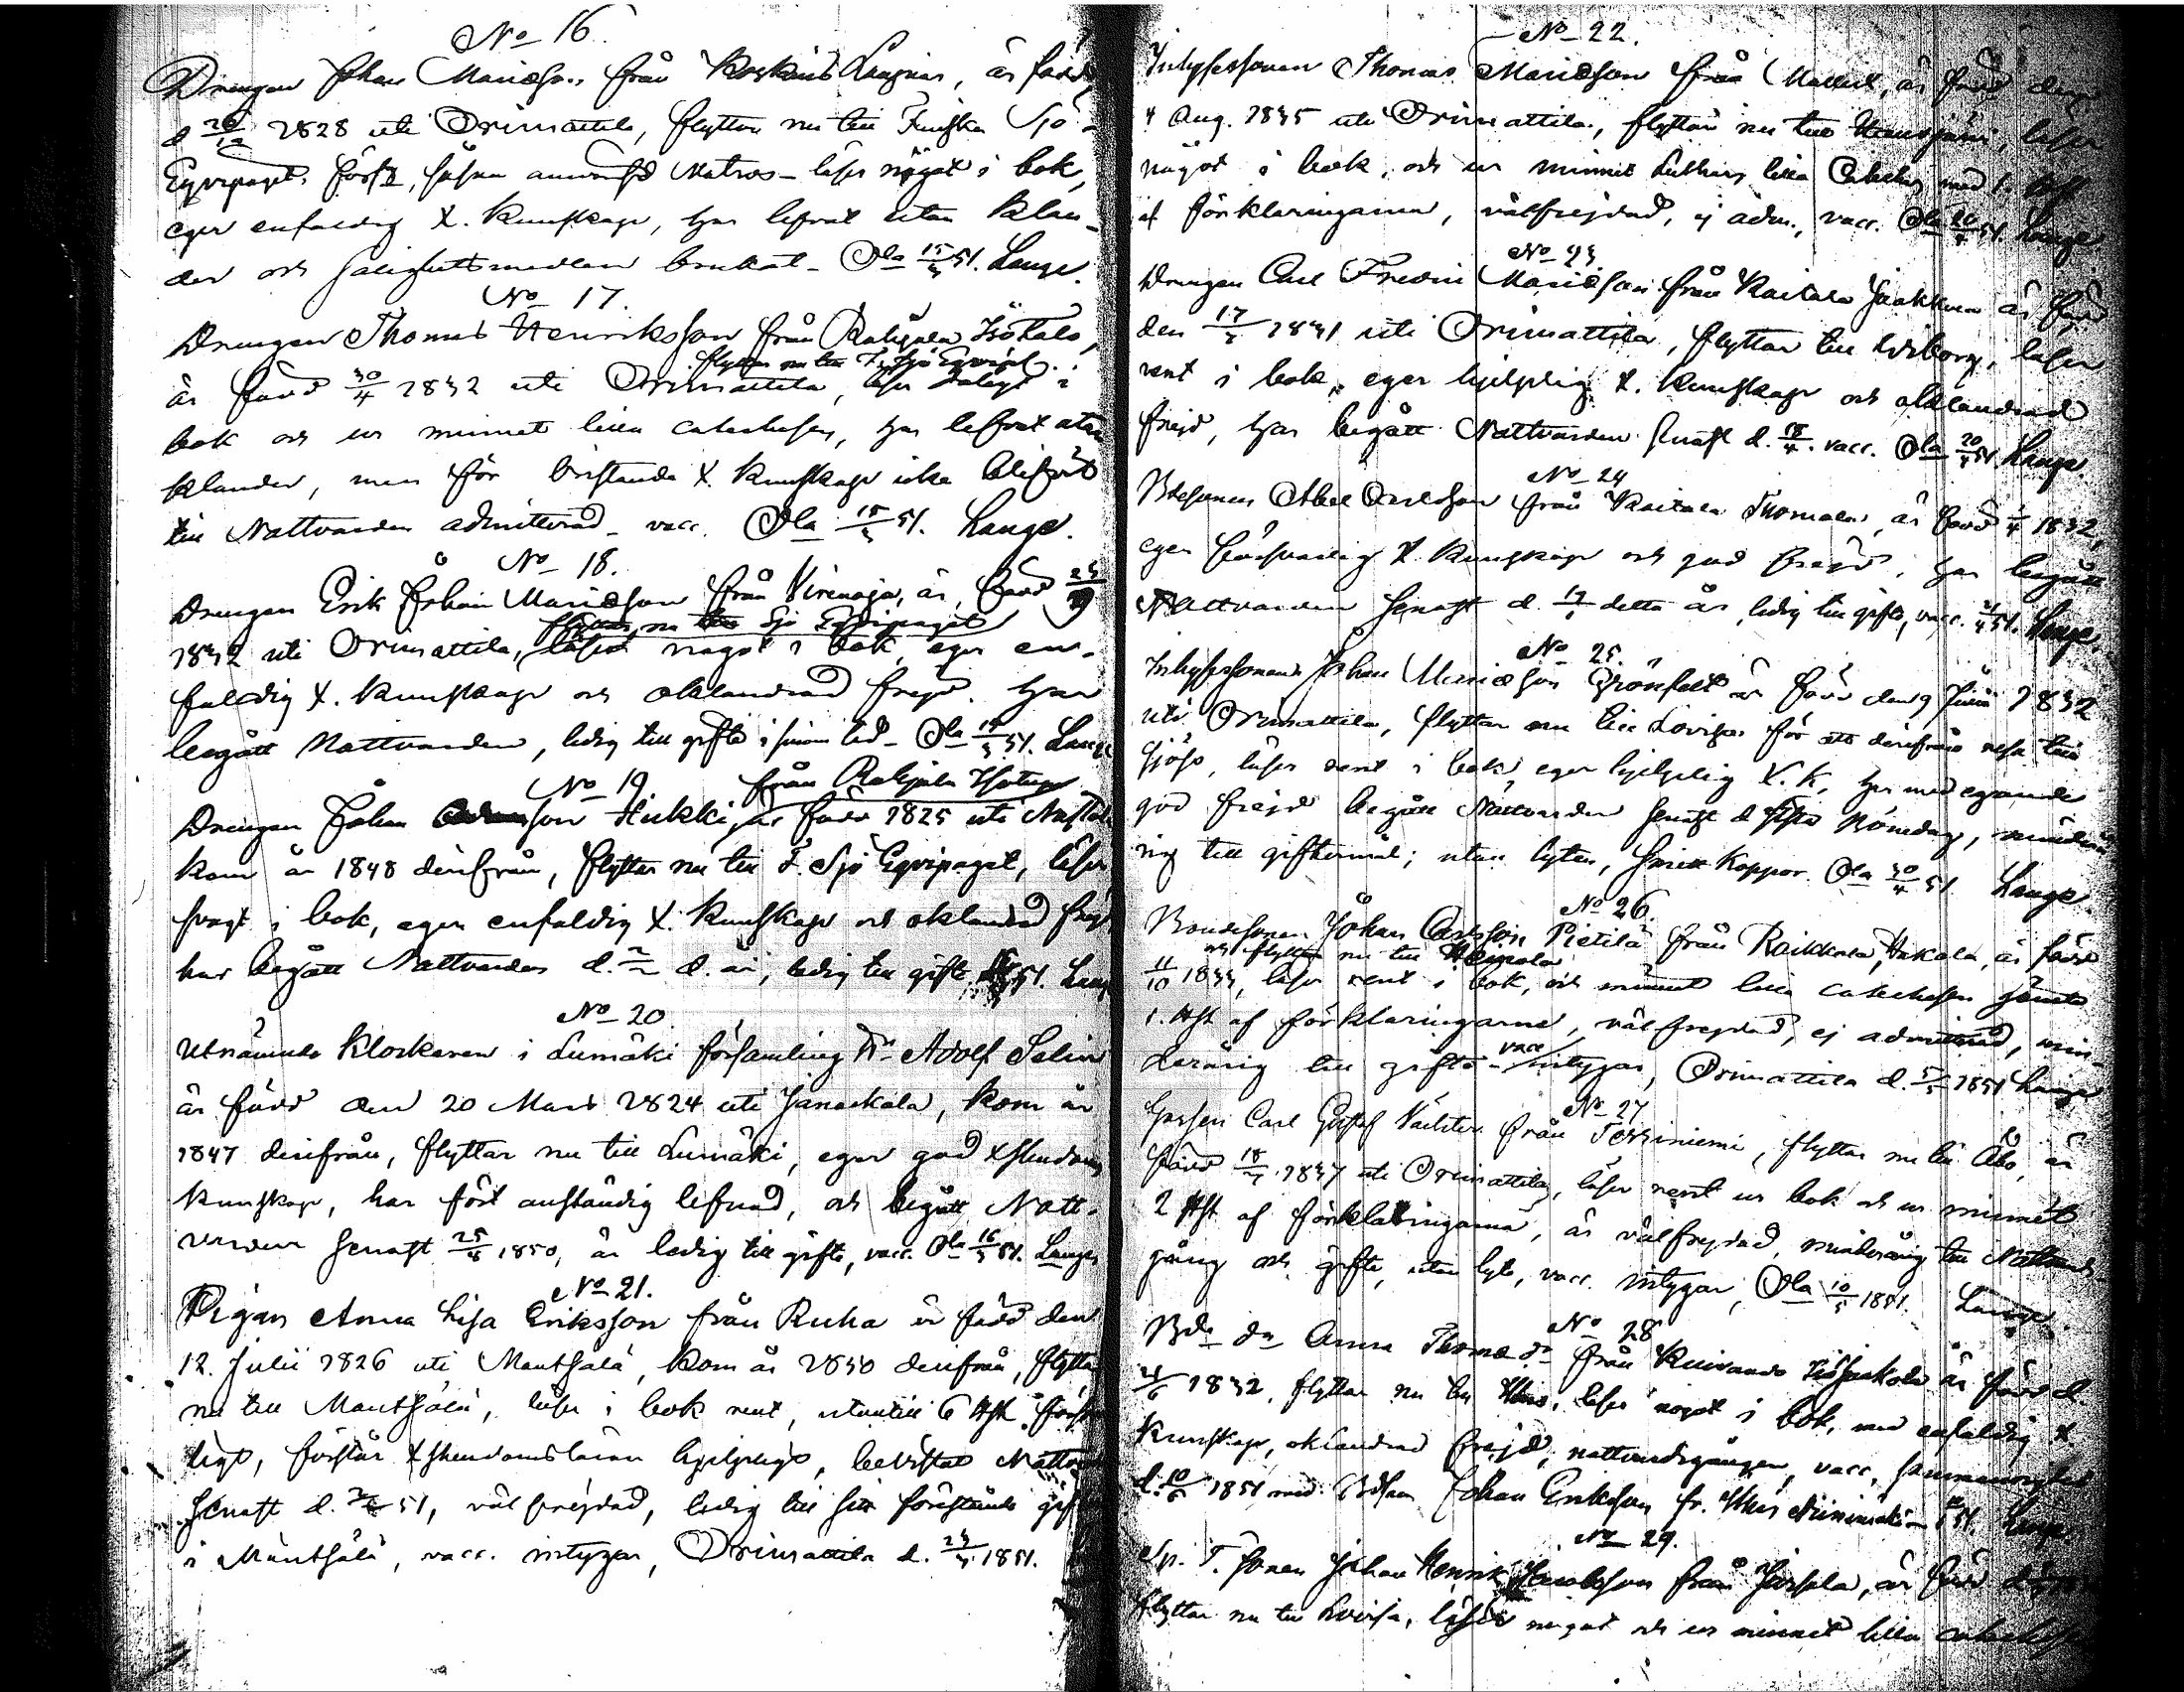 No 16.
Drengen Johan Mariæson från Koskus Laurnas, är född
d 26/12 1828 uti Orimattila, flyttar nu till Finska Sjö-
Eqvipaget, såsom Matros - läser något i bok,
eger enfaldig X. kunskap, har lefvat utan klan-
der och salighetsmedlen brukat - Ola 15/3 51. Lange.
No 17.
Drengen Thomas Henriksson från Isötalo,
flyttar nu till F. Sjö Eqvipt.
är född 30/4 1832 uti Orimattila, läser dåligt i
bok och ur minnet lilla catechesen, har lefvat utan
klander, men för bristande X. kunskap icke blifvit
till Nattvarden admitterad - vacc. Ola 15/3 51. Lange.
No 18.
Drengen Erik Johan Mariæson från Virenoja, är född
flyttar nu till Sjö Eqvipaget
1832 uti Orimattila, läser något i bok, eger en-
faldig X. kunskap och oklandrad frejd. Har
begått Nattvarden, ledig till gifte i sinom tid - Ola 15/3 51. Lange
No 19.
från
Drengen Johan Hukki, är född 1825 uti Nastola
kom år 1848 derifrån, flyttar nu till F. Sjö Eqvipaget, läser
svagt i bok, eger enfaldig X. kunskap och oklandrad frejd
har begått Nattvarden d. d. år, ledig till gifte 51. Lange
No 20.
Utnämnde Klockaren i Lumäki församling Hr Adolf Selin
är född den 20 Mars 1824 uti Janackala, kom år
1847 derifrån, flyttar nu till Lumäki, eger god Xstendoms
kunskap, har fört anständig lefnad, och begått Natt-
varden senast 25/4 1850, är ledig till gifte, vacc. Ola 16/3 51. Lange
No 21.
Pigan Anna Lisa Eriksson från Ruha är född den
12. Julii 1826 uti Mäntsälä, kom år 1850 derifrån, flyttar
nu till Mäntsälä, läser i bok rent, utantill 6 Hst försvar-
ligt, förstår Xstendomsläran hjelpligt, bevistat Nattvarden
senast d. 51, välfrejdad, ledig till sitt förestående gifte
i Mäntsälä, vacc. intygar, Orimattila d. 1851.
No 22.
Inhysessonen Thomas Mariæson från är född den
4 Aug. 1835 uti Orimattila, flyttar nu till Hausjärvi, läser
något i bok, och ur minnet Luthers lilla Cateches med 1. Hst
af förklaringarna, välfrejdad, ej adm., vacc. Ola 20/4 51. Lange
No 23
Drengen Carl Fredric Mariæson från Kaitala Jaakkola är född
den 17/3 1831 uti Orimattila, flyttar till Wiborg, läser
rent i bok, eger hjelplig X. kunskap och oklandrad
frejd, har begått Nattvarden senast d. 18/4. vacc. Ola 20/4 51 Lange.
No 24
Bdesonen Abel Carlsson från Kaitala Thomala, är född 1/4 1832,
eger försvarlig X. kunskap och god frejd, har begått
Nattvarden senast d. detta år, ledig till gifte, vacc. 21/4 51. Lange.
No 25.
Inhysessonen Johan Mariæson Grönfelt är född den 9 Junii 1832
uti Orimattila, flyttar nu till Lovisa för att derifrån resa till
sjöss, läser rent i bok, eger hjelplig X. K, har med egande
god frejd begått Nattvarden senast d. sista Bönedag, minderå-
rig till giftermål; utan lyten, haft Koppor. Ola 30/4 51. Lange.
No 26.
Bondesonen Johan Carlsson Pietilä från Raikkala, Hakala, är född
och flyttar nu till Heinola
11/10 1833, läser rent i bok, och minnet lilla catechesen jemte
1. Hst af förklaringarna, välfrejdad, ej admitterad, min-
derårig till gifte - vacc intygar, Orimattila d. 5/5 1851 Lange
No 27
Gossen Carl Gustaf från Terriniemi, flyttar nu till Åbo, är
född 18/7 1837 uti Orimattila, läser rent ur bok och ur minnet
2 Hst af förklaringarna, är välfrejdad, minderårig till Nattvards
gång och gifte, utan lyte, vacc. intygar, Ola 10/5 1851. Lange.
No 28
Bde dr Anna Thomæ dr från Kuivando är född d.
24/6 1832, flyttar nu till läser något i bok, med enfaldig X.
kunskap, oklandrad frejd, nattvardsgången, vacc, sammanvigd
d. 10/6 1851 med Bdson Johan Eriksson fr. 51. Lange.
No 29.
Sp. T. sonen Johan Henrik Jacobsson från är född
flyttar nu till Lovisa, läser något och ur minnet lilla catechesen